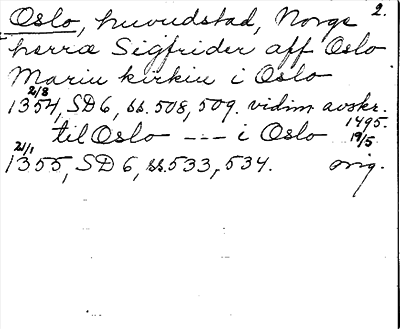 Oslo, huvudstad, Norge 2.
herra Sigfrider aff Oslo
Mariu kirkiu i Oslo
2/8
1354, SD6, ss. 508, 509. vidim avskr.
1495.
til Oslo --- i Oslo 19/5
21/1
1355, SD6, ss. 533, 534. orig.